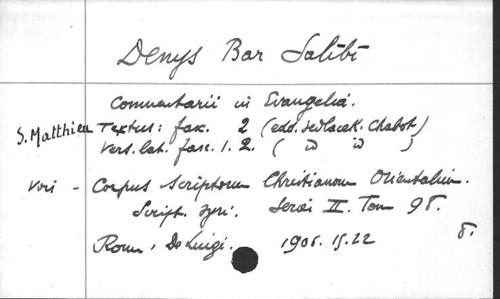 Denys Bar Salibi
Commentarii in Evangelia.
S. Matthieu Textus: fasc. 2 (edd. Sedlacek. Chabot)
Vers. lat. fasc. 1. 2. ( id id )
Voir - Corpus Scriptorum Christianorum Orientalium.
Script. syri. Series II. Tom 98.
Rom, De Luigi. 1906. 15. 22 8.